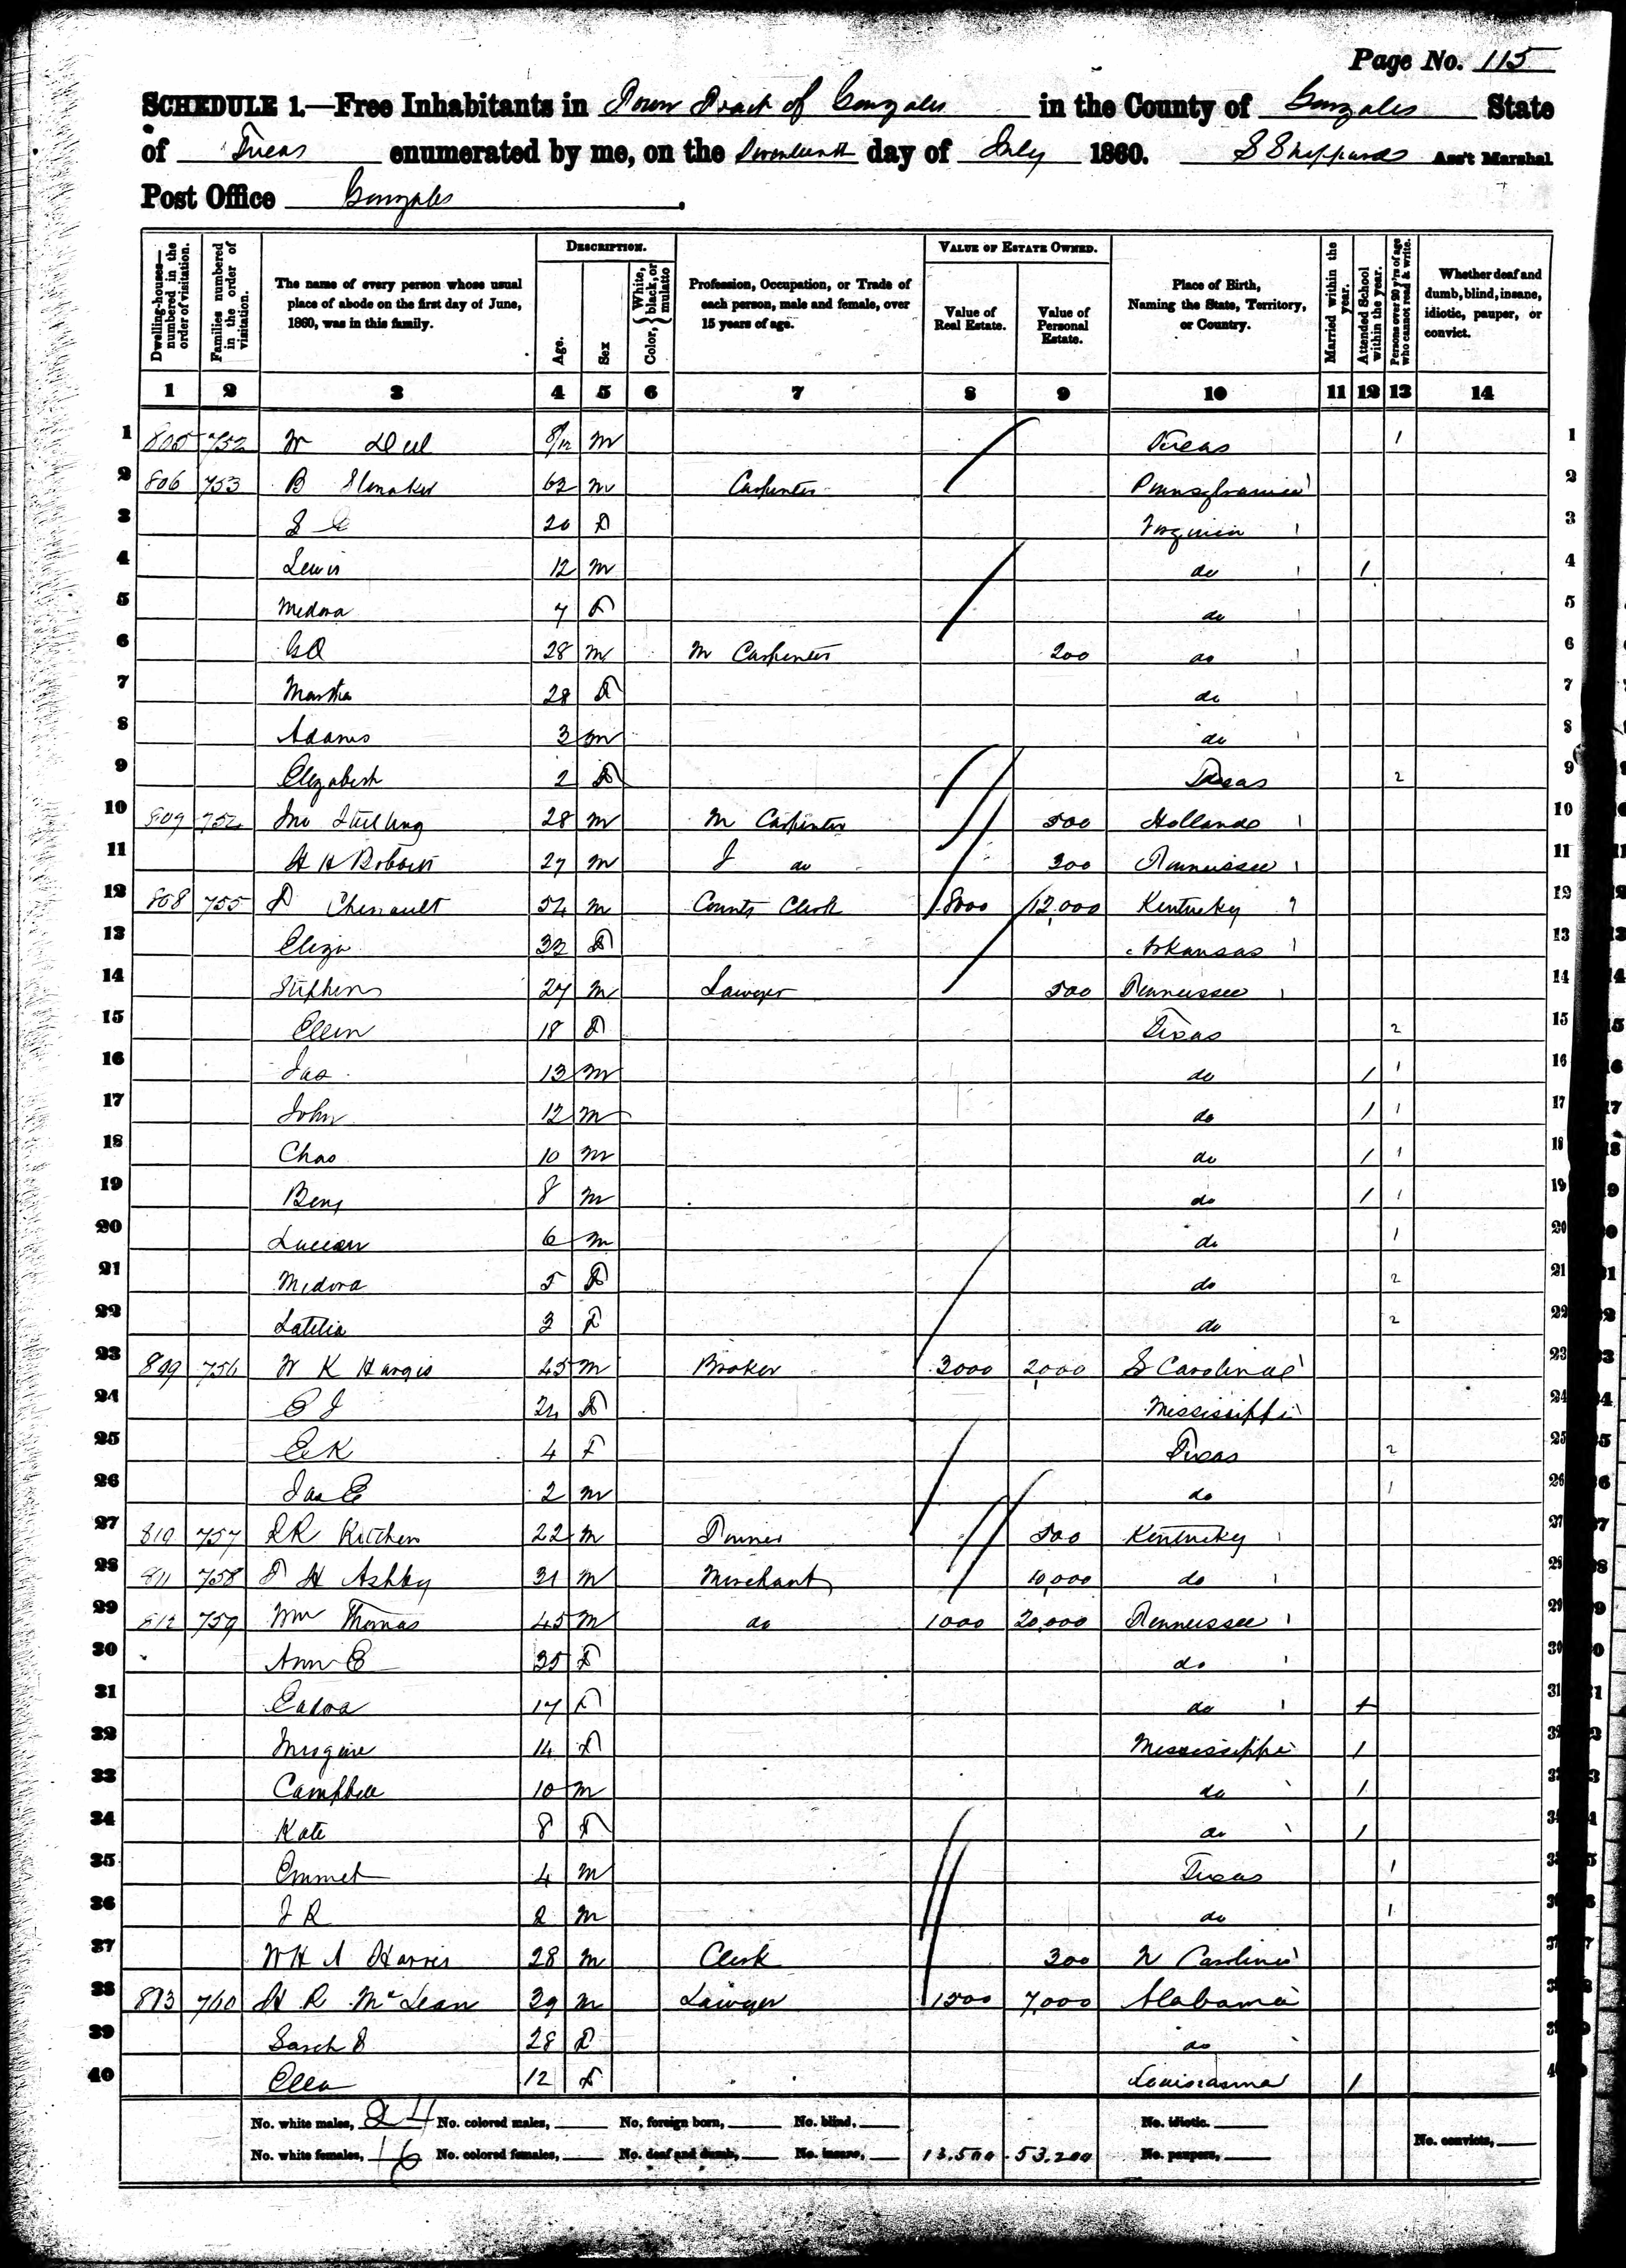 Page No. 115
SCHEDULE 1.—Free Inhabitants in Town Tract of Gonzales in the County of Gonzales State
of Texas enumerated by me, on the Seventeenth day of July 1860. S Sheppard Ass't Marshal.
Post Office Gonzales.
DESCRIPTION. VALUE OF ESTATE OWNED.
Dwelling-houses—numbered in the order of visitation. Families numbered in the order of visitation. The name of every person whose usual place of abode on the first day of June, 1860, was in this family. Age. Sex Color, {White, black, or mulatto Profession, Occupation, or Trade of each person, male and female, over 15 years of age. Value of Real Estate. Value of Personal Estate. Place of Birth, Naming the State, Territory, or Country. Married within the year. Attended School within the year. Persons over 20 y'rs of age who cannot read & write. Whether deaf and dumb, blind, insane, idiotic, pauper, or convict.
1 2 3 4 5 6 7 8 9 10 11 12 13 14
1 805 752 W 8/12 m Texas 1 1
2 806 753 B 62 m Carpenter Pennsylvania 2
3 20 F Virginia 3
4 Lewis 12 m do 1 4
5 Medora 7 F do 5
6 28 m M Carpenter 200 do 6
7 Martha 28 F do 7
8 Adams 3 m do 8
9 Elizabeth 2 F Texas 2 9
10 809 754 Jno 28 m M Carpenter 500 Holland 10
11 H H Roberts 27 m J do 300 Tennessee 11
12 808 755 F Chenault 54 m County Clerk 8000 12,000 Kentucky 12
13 Eliza 33 F Arkansas 13
14 Stephen 27 m Lawyer 500 Tennessee 14
15 Ellen 18 F Texas 2 15
16 Jas 13 m do 1 1 16
17 John 12 m do 1 1 17
18 Chas 10 m do 1 1 18
19 Benj 8 m do 1 1 19
20 Lucian 6 m do 1 20
21 Medora 5 F do 2 21
22 Latitia 3 F do 2 22
23 809 756 W K Hargis 45 m Broker 3000 2000 S Carolina 23
24 E J 24 F Mississippi 24
25 E K 4 F Texas 2 25
26 Jas E 2 m do 1 26
27 810 757 R R Kitchen 22 m 500 Kentucky 27
28 811 758 T H Ashby 31 m Merchant 10,000 do 28
29 812 759 Wm Thomas 45 m do 1000 20,000 Tennessee 29
30 Ann E 35 F do 30
31 17 F do 1 31
32 14 F Mississippi 1 32
33 Campbell 10 m do 1 33
34 Kate 8 F do 1 34
35 Emmet 4 m Texas 1 35
36 J R 2 m do 1 36
37 W H A Harris 28 m Clerk 300 N Carolina 37
38 813 760 H R McLean 39 m Lawyer 1500 7,000 Alabama 38
39 Sarah J 28 F do 39
40 Ella 12 F Louisiana 1 40
No. white males, 24 No. colored males, No. foreign born, No. blind, No. idiotic.
No. white females, 16 No. colored females, No. deaf and dumb, No. insane, 13.500 53.200 No. paupers, No. convicts,